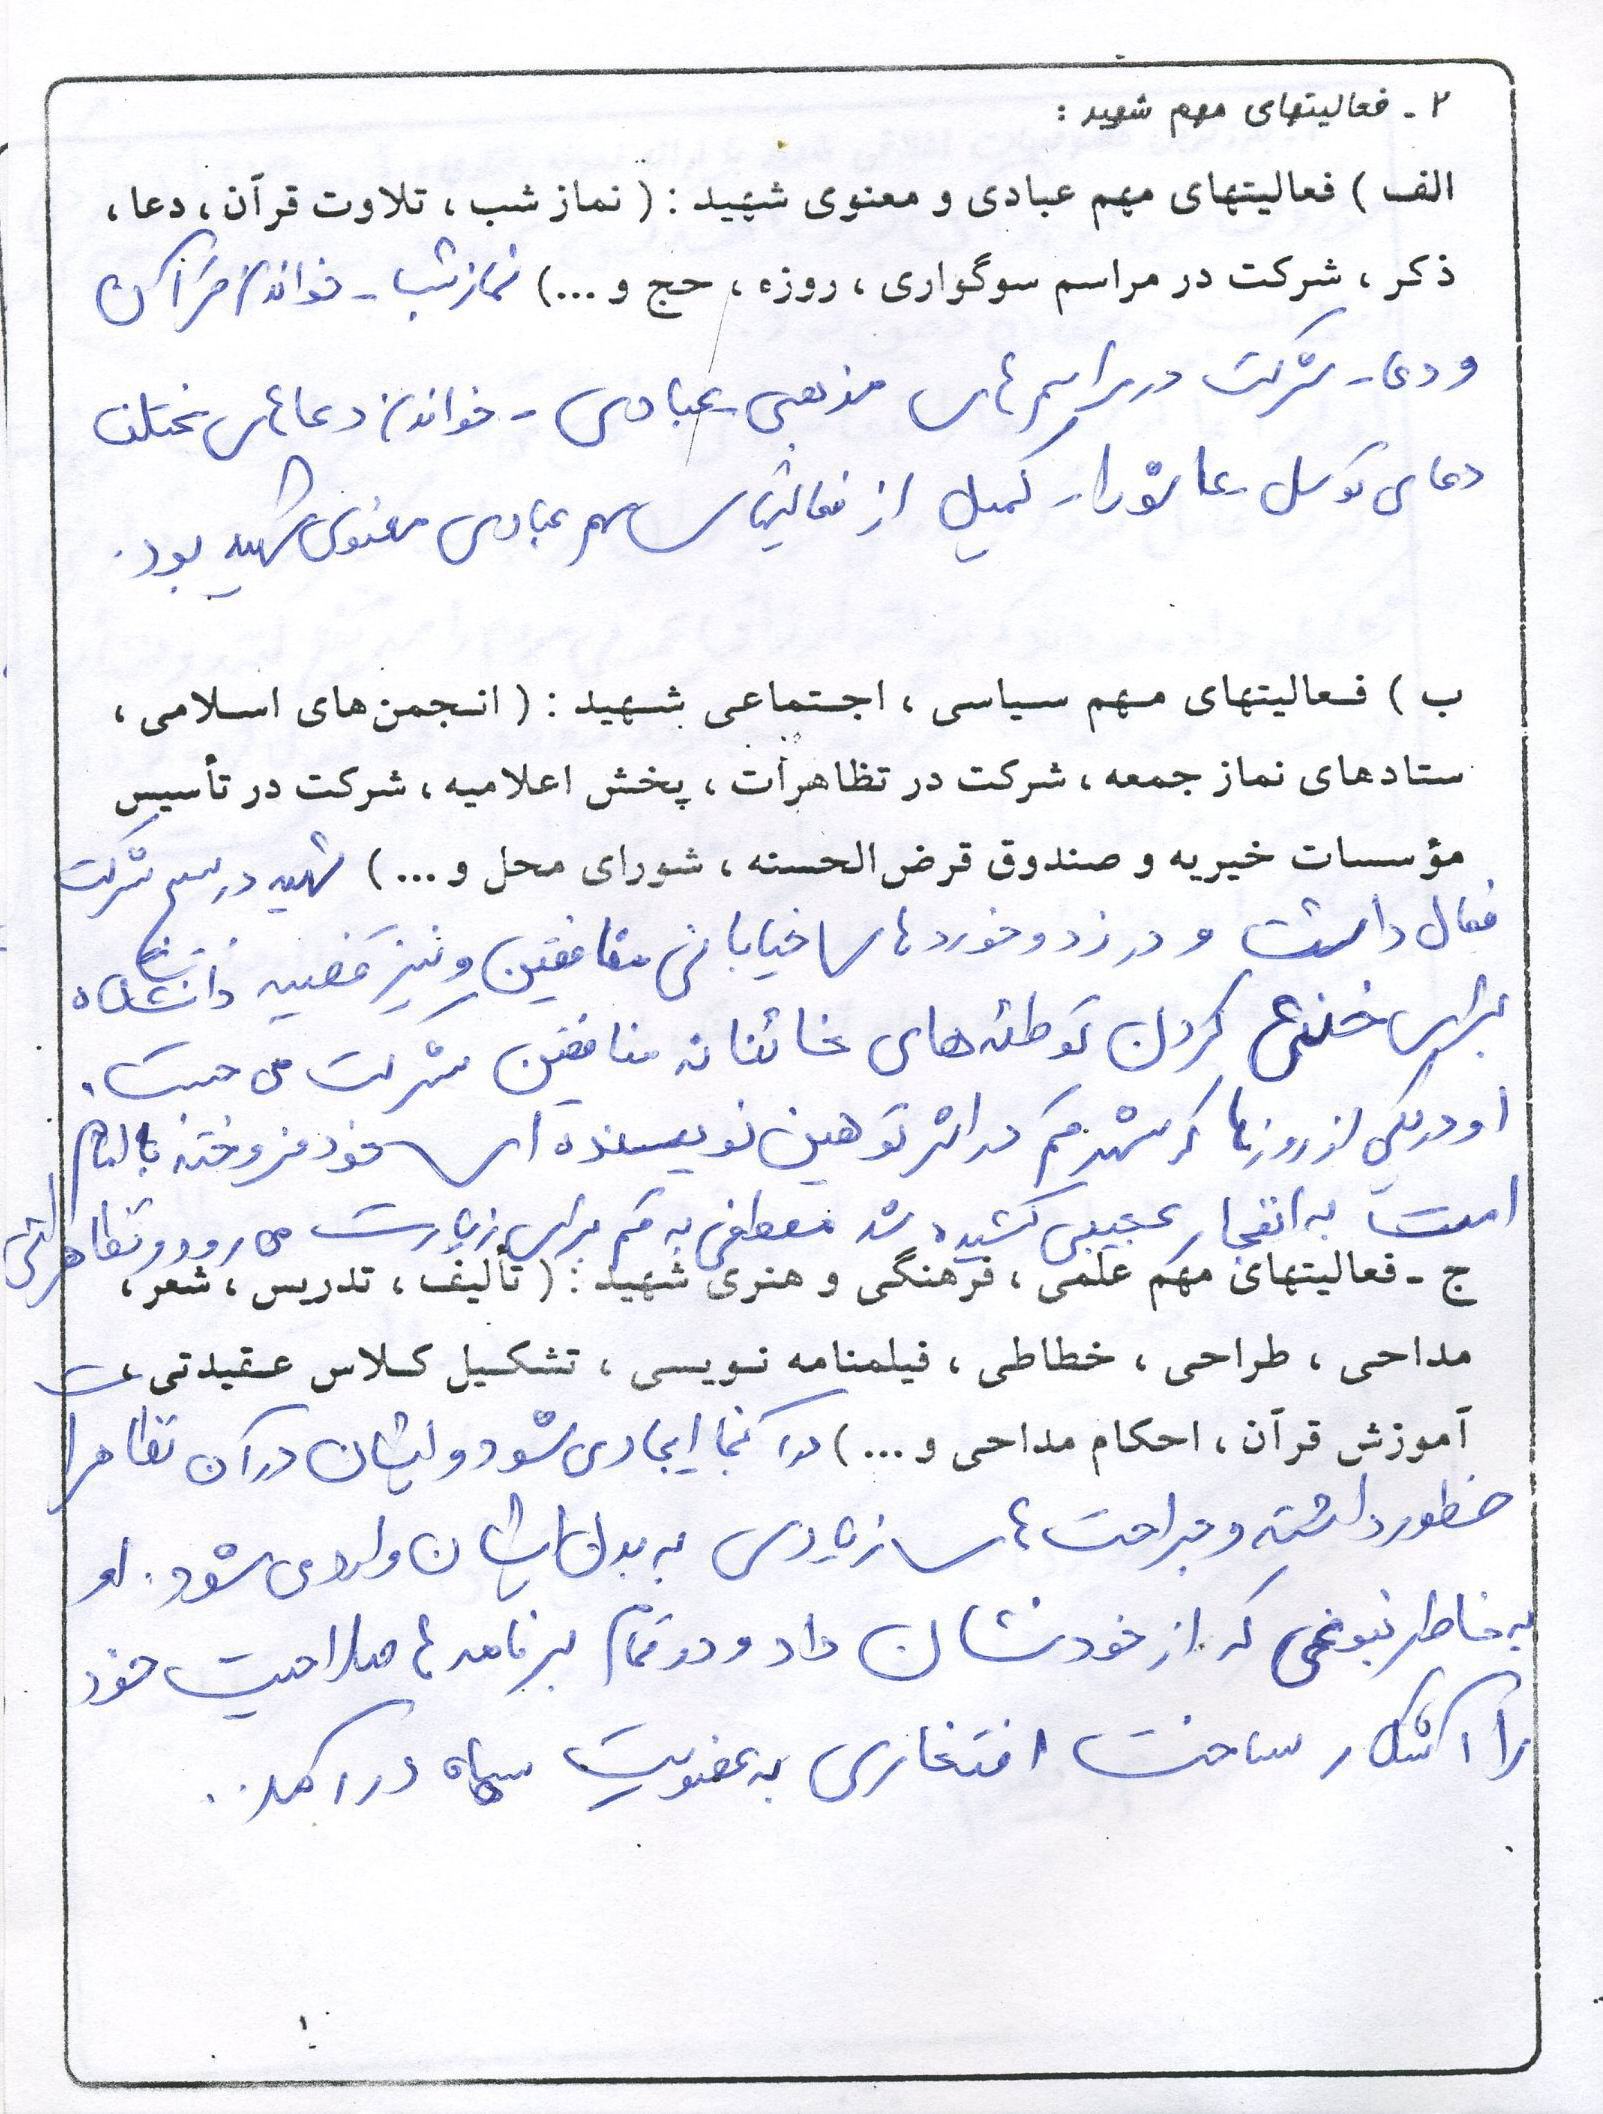 ۲ - فعالیتهای مهم شهید :
الف ) فعالیتهای مهم عبادی و معنوی شهید : ( نماز شب ، تلاوت قرآن ، دعا ،
ذکر ، شرکت در مراسم سوگواری ، روزه ، حج و ...) نماز شب - خواندن قرآن
و دعا - شرکت در مراسم های مذهبی عبادی - خواندن دعاهای مختلف
دعای توسل عاشورا - کمیل از فعالیتهای مهم عبادی معنوی شهید بود .
ب ) فعالیتهای مهم سیاسی ، اجتماعی شهید : ( انجمن‌های اسلامی ،
ستادهای نماز جمعه ، شرکت در تظاهرات ، پخش اعلامیه ، شرکت در تأسیس
مؤسسات خیریه و صندوق قرض‌الحسنه ، شورای محل و ...) شهید در شرکت
فعال داشت و در زد و خورد های خیابانی منافقین و نیز قضیه دانشگاه
برای خنثی کردن توطئه‌های خائنانه منافقین شرکت می جست .
او در یکی از روزها که شهر قم در اثر توهین نویسنده ای خود فروخته به امام
امت به انفجار عجیبی کشیده شد مصطفی به قم برای زیارت می رود و تظاهراتی
ج - فعالیتهای مهم علمی ، فرهنگی و هنری شهید : ( تألیف ، تدریس ، شعر ،
مداحی ، طراحی ، خطاطی ، فیلمنامه نویسی ، تشکیل کلاس عقیدتی ،
آموزش قرآن ، احکام مداحی و ...) در آنجا ایجاد می شود و ایشان در آن تظاهرات
حظور داشته و جراحت های زیادی به بدن ایشان وارد می شود . او
به خاطر نبوغی که از خود نشان داد و در تمام برنامه ها صلاحیت خود
را آشکار ساخت افتخاری به عضویت سپاه در آمد .